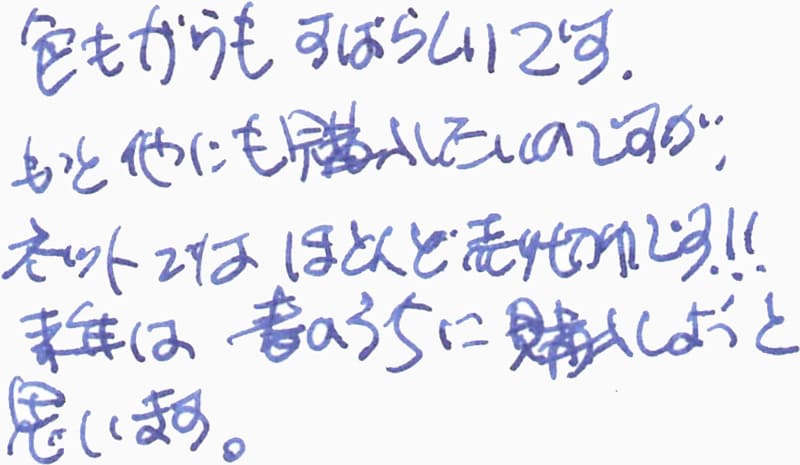 色もがらも すばらしいです.
もっと他にも購入したいのですが、
ネットではほとんど売り切れです!!
来年は 春のうちに購入しようと
思います。